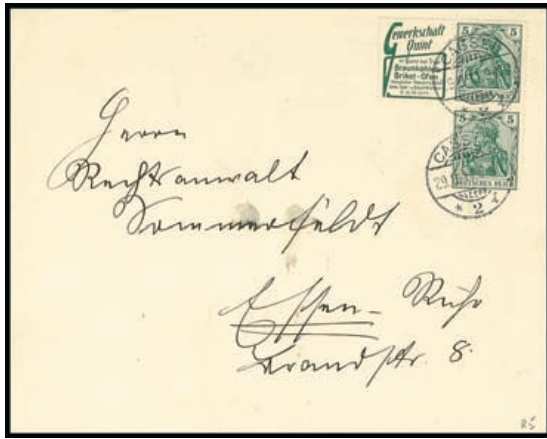 Gewerkschaft
Quint
Braunkohlen
Briket-Ofen
5 5
CASSEL
5 5
CASSEL
29.
DEUTSCHES REICH
* 2 r
Herrn
Rechtsanwalt
Sommerfeldt
Essen-Ruhr
Brandstr. 8.